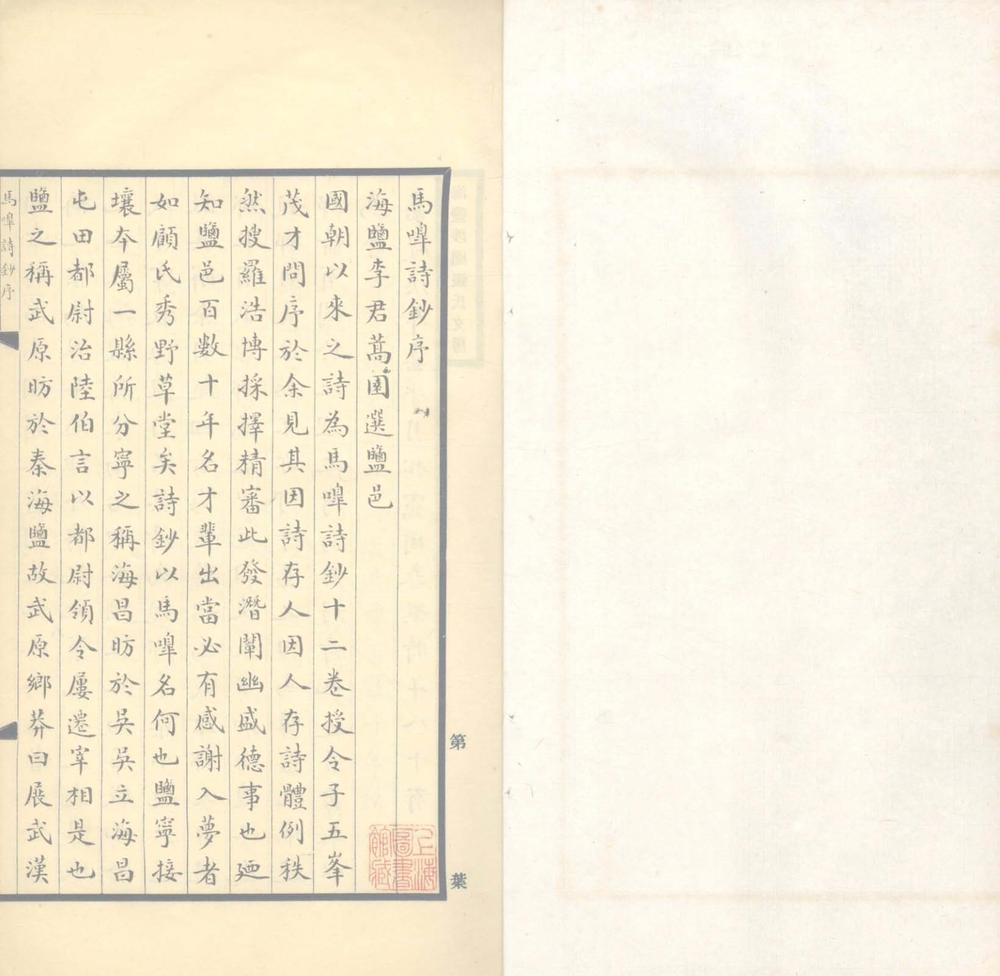 馬嘷詩鈔序
海鹽李君蒿園選鹽邑
國朝以來之詩為馬嘷詩鈔十二卷授令子五峯
茂才問序於余見其因詩存人因人存詩體例秩
然搜羅浩博採擇精審此發潛闡幽盛德事也廼
知鹽邑百數十年名才輩出當必有感謝入夢者
如顧氏秀野草堂矣詩鈔以馬嘷名何也鹽寧接
壤本屬一縣所分寧之稱海昌昉於吳吳立海昌
屯田都尉治陸伯言以都尉領令屢遷宰相是也
鹽之稱武原昉於秦海鹽故武原鄉莽曰展武漢
馬嘷詩鈔序
第 葉
上海圖書館藏